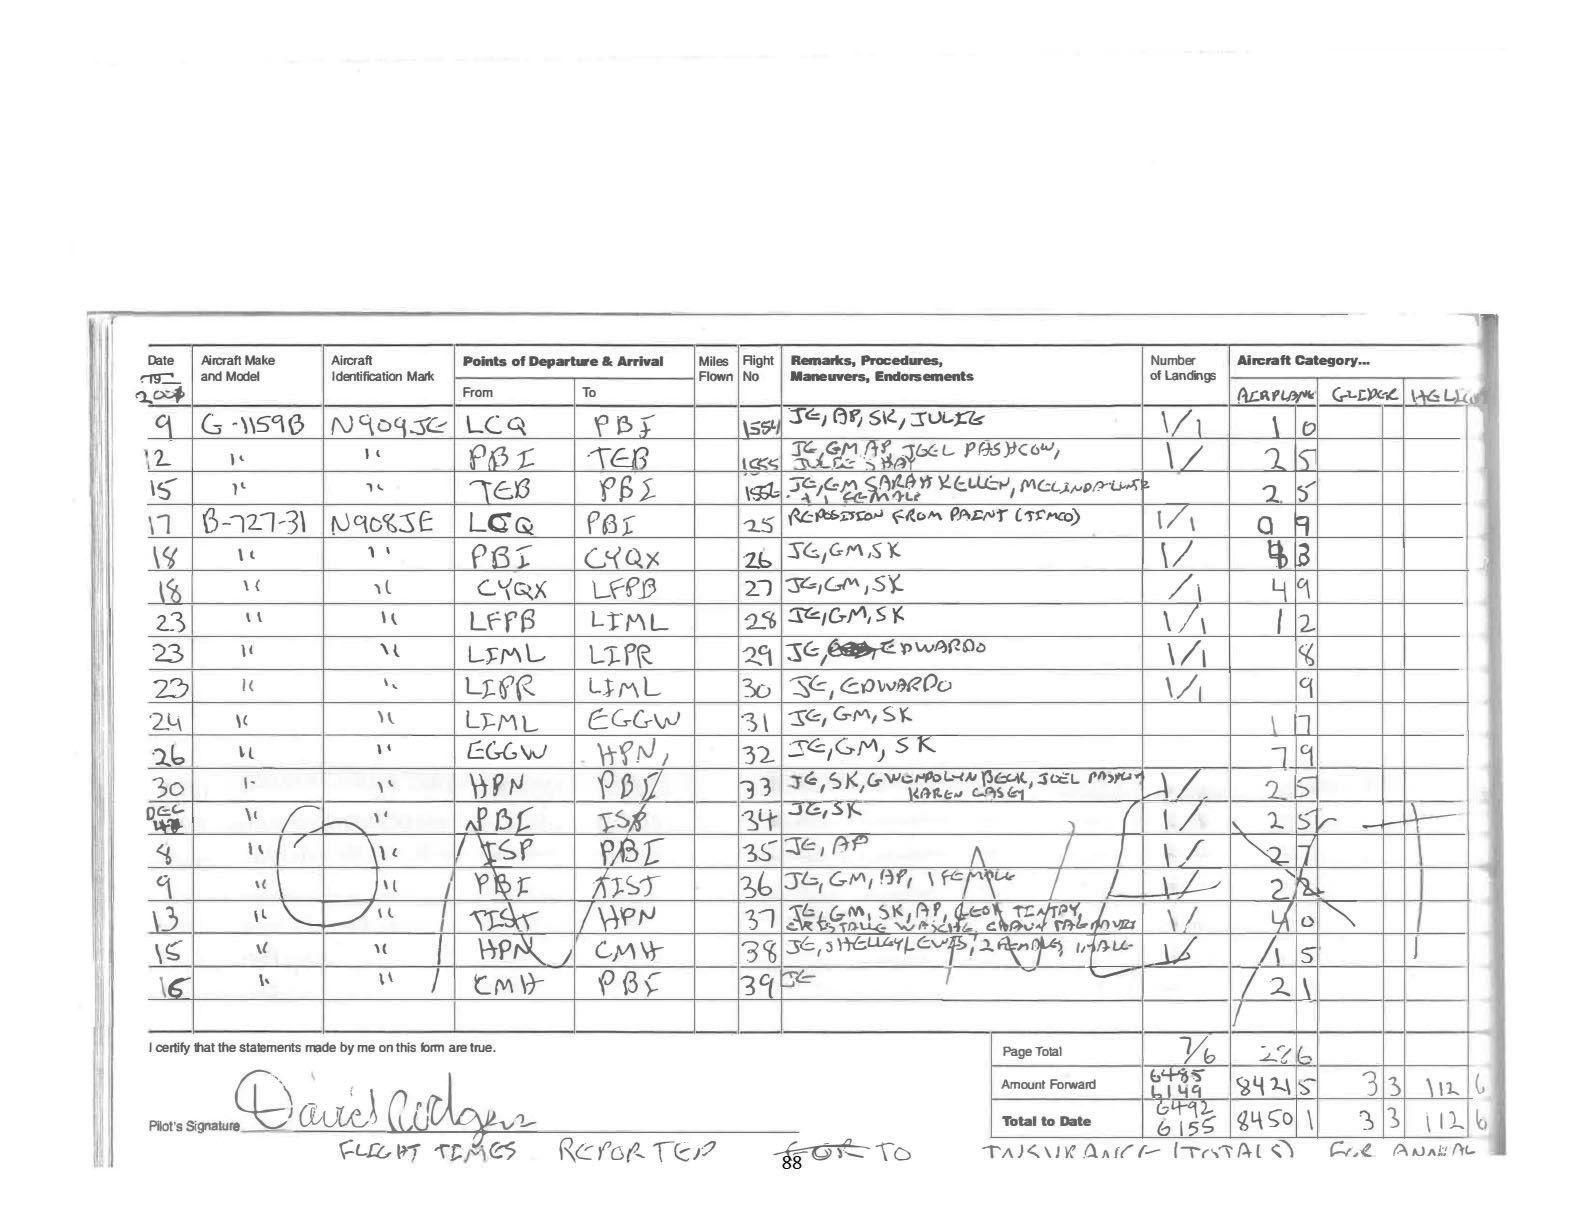 Date Aircraft Make Aircraft Points of Departure & Arrival Miles Flight Remarks, Procedures, Number Aircraft Category...
and Model Identification Mark Flown No Maneuvers, Endorsements of Landings
19
200 From To AIRPLANE GLIDER
9 G-1159B N909JE LCQ PBI 1554 JE, AP, SK, JULIE 1/1 1 0
12 " " PBI TEB 1555 JE, GM AP, JOEL PASHCOW,
1/ 2 5
15 " " TEB PBI JE, GM SARAH KELLEN, MELINDA
+ 1 FEMALE 2 5
17 B-727-31 N908JE LCQ PBI 25 REPOSITION FROM PAINT (TIMCO) 1/1 0 9
18 " " PBI CYQX 26 JE, GM, SK 1/ 3
18 " " CYQX LFPB 27 JE, GM, SK /1 4 9
23 " " LFPB LIML 28 JE, GM, SK 1/1 1 2
23 " " LIML LIPR 29 JE, EDWARDO 1/1 8
23 " " LIPR LIML 30 JE, EDWARDO 1/1 9
24 " " LIML EGGW 31 JE, GM, SK 1 7
26 " " EGGW HPN 32 JE, GM, SK 7 9
30 " " HPN PBI 33 JE, SK, GWENDOLYN BECK, JOEL
KAREN CASEY 1/ 2 5
DEC
" " PBI ISP 34 JE, SK 1/ 2 5
8 " " ISP PBI 35 JE, AP 1/ 2 7
9 " " PBI TIST 36 JE, GM, AP, 1 FEMALE 1/ 2 2
13 " " TIST HPN 37 JE, GM, SK, AP,
1/ 4 0
15 " " HPN CMH 38 JE, SHELLEY LEWIS, 2 FEMALES, 1 MALE 1 5
16 " " CMH PBI 39 JE 2 1
I certify that the statements made by me on this form are true.
Page Total 7/6 28 6
Amount Forward 6485 6149 8421 5 3 3 112 6
Total to Date 6492 6155 8450 1 3 3 112 6
Pilot's Signature David Rodgers
FLIGHT TIMES REPORTED FOR TO INSURANCE (TOTALS) FOR ANNUAL
88